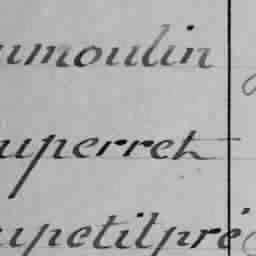 umoulin
uperret
upetitpré